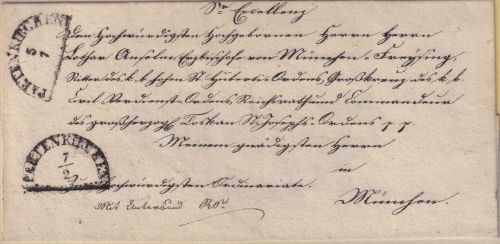 Sr Excellenz
PARTENKIRCHEN
5
7
Dem Hochwürdigsten Hochgebornen Herrn Herrn
Lothar Anselm Erzbischofe von München-Freysing,
Ritter des k. b. hohen St. Huberts-Ordens, Großkreuz des k. b.
Civil-Verdienst-Ordens, Reichsrath und Commandeur
des großherzogl Toskan St. Josephs-Ordens p. p.
Meinem gnädigsten Herrn
PARTENKIRCHEN
7
2
in
Hochwürdigsten Ordinariate.
München.
Mit Unterband